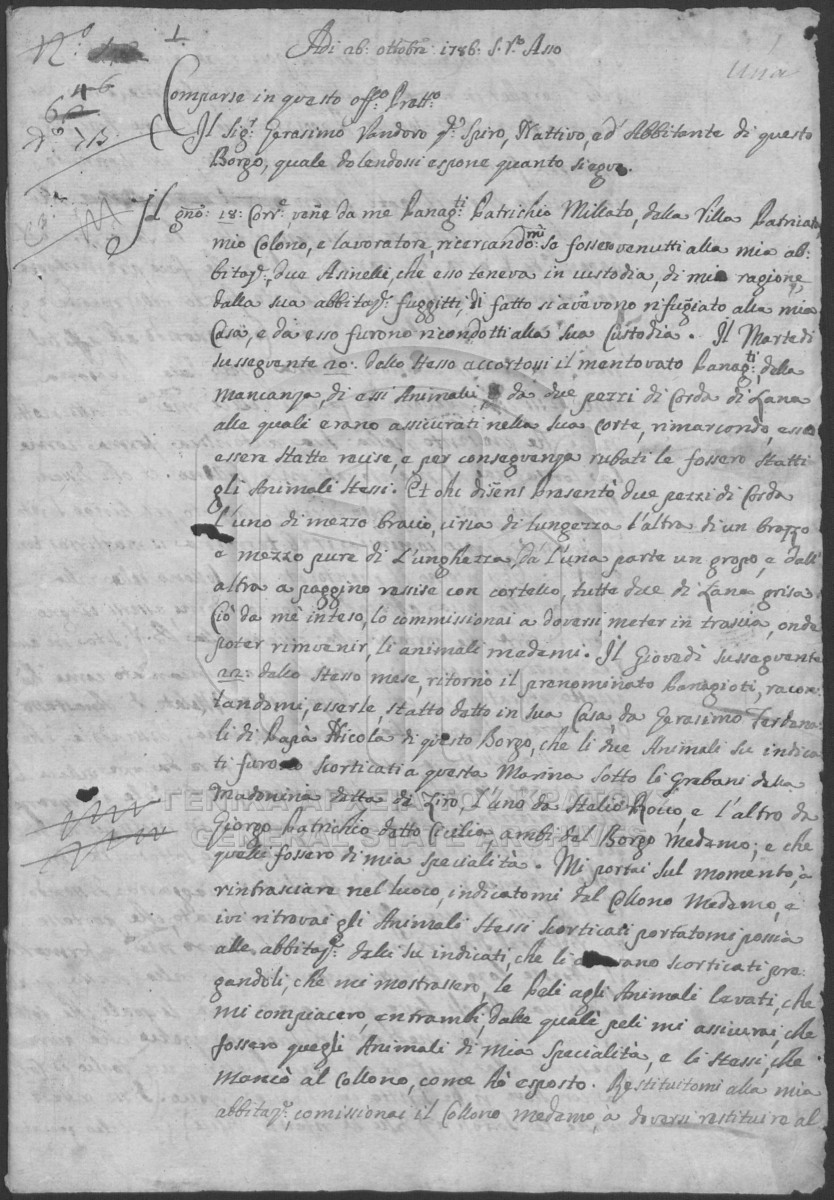 Nº 1.
Adi 26: ottobre 1786: S. Vº Asso
Una
46
Comparse in questo offº Prettº
Il Sigr Gerasimo Vandoro qm Spiro, Nattivo, ed Abbitente di questo
Borgo, quale dolendossi espone quanto siegue.
Il gno: 18: Corre vene da me Panagti Patrichio Millato, della Villa
mio Colono, e lavoratore, ricercandomi se fossero venutti alla mia ab:
bitaze: due Asinelli, che esso teneva in custodia, di mia ragione
dalla sua abbitaze: fuggitti, di fatto si avevono rifugiato alla mia
Casa, e da esso furono ricondotti alla sua Custodia. Il Martedi
sussegvente 20: dello stesso accortossi il mentovato Panagti: della
mancanza, di essi Animali, da due pezzi di Corda di Lana
alle quali erano assicurati nella sua Corte, rimarcondo, esse
essere statte recise, e per consegvenza rubati le fossero statti
gli Animali stessi. Et chi disens Presentò due pezzi di Corda
l'uno di mezzo bracio, circa di lungezza l'altra di un brazzo
e mezzo pure di l'unghezza, da l'una parte un gropo, e dall'
altra a paggino ressise con cortello, tutte due di Lana grisa
Ciò da mè inteso, lo commissionai a doversi meter in traccia, onde
poter rinvenir, li animali medemi. Il Giovedi sussegvente
22: dello stesso mese, ritornò il prenominato Panagioti, racon:
tandomi, esserle, statto detto in sua Casa, da Gerasimo
li di Papà Nicola di questo Borgo, che li due Animali su indica
ti furono scorticati a questa Marina sotto li grebani della
Madonina detta di Liro, l'uno da Stalio Rocco, e l'altro da
Giorgo Patrichio detto Cecilia, ambi del Borgo Medemo; e che
quelli fossero di mia specialità. Mi portai sul momento, à
rintrasciare nel luoco, indicatomi dal Collono Medemo, e
ivi ritrovai gli Animali stessi scorticati portatomi poscia
alle abbitaze: delli su indicati, che li scorticati pre:
gandoli, che mi mostrassero, le Peli agli Animali levati, che
mi compiacero, entrambi, dalle qualì peli mi assicurai, che
fossero quegli Animali di mia Specialità, e li stessi, che
Mancò al Collono, come hò esposto. Restituitomi alla mia
abbitaze: comissionai il Collono medemo, à doversi restituire al
ΓΕΝΙΚΑ ΑΡΧΕΙΑ ΤΟΥ ΚΡΑΤΟΥΣ
GENERAL STATE ARCHIVES